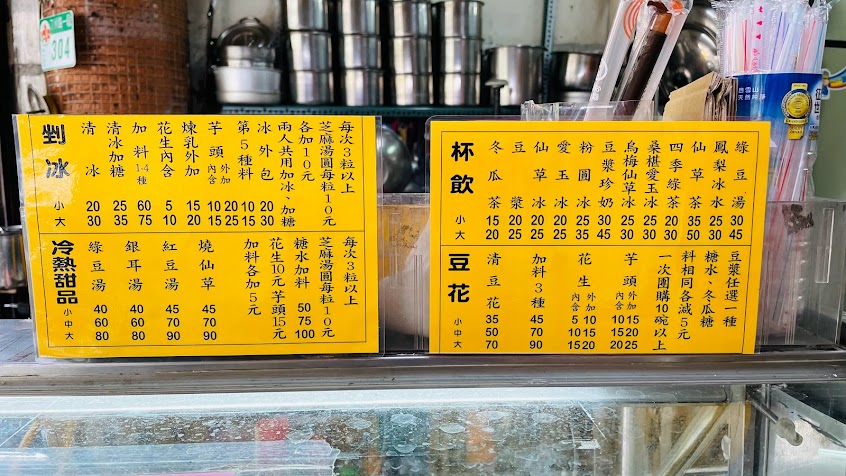 304
剉冰
小
大
清冰
20
30
清冰加糖
25
35
加料1-4種
60
75
花生內含
5
10
煉乳外加
15
20
芋頭
內含
外加
10
15
第5種料
10
冰外包
20
30
兩人共用加冰、加糖
各加10元
芝麻湯圓每粒10元
每次3粒以上
冷熱甜品
小
中
大
綠豆湯
40
60
80
銀耳湯
40
60
80
紅豆湯
45
70
90
燒仙草
45
70
90
加料各加5元
花生10元芋頭15元
糖水加料
50
75
100
芝麻湯圓每粒10元
每次3粒以上
杯飲
小
大
冬瓜茶
15
20
豆漿
15
25
仙草冰
20
25
愛玉冰
20
25
粉圓冰
25
35
豆漿珍奶
35
45
烏梅仙草冰
25
30
桑椹愛玉冰
25
30
四季綠茶
20
30
仙草茶
35
50
鳳梨冰水
25
30
綠豆湯
30
45
豆花
小
中
大
清豆花
35
50
70
加料3種
45
70
90
花生
內含
外加
5 10
10 15
15 20
芋頭
內含
外加
10 15
15 20
20 25
一次團購10碗以上
料相同各減5元
糖水、冬瓜糖
豆漿任選一種